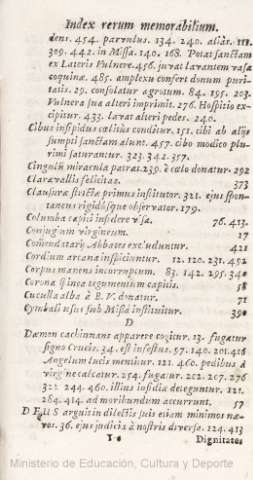 Index rerum memorabilium.
dens. 454. parvulus. 134. 240. aliàs. 111.
309. 442. in Missa. 140. 168. Potat sanctam
ex Lateris Vulnere. 456. juvat lavantem vasa
coquinæ. 485. amplexu confert donum puri-
tatis. 29. consolatur agrotum. 84. 195. 203.
Vulnera sua alteri imprimit. 276. Hospitio ex-
cipitur. 433. lavat alteri pedes. 240.
Cibus insipidus cœlitùs conditur. 151. cibi ab alijs
sumpti sanctam alunt. 457. cibo modico plu-
rimi saturantur. 323. 342. 357.
Cinguli miracula patrat. 239. è cœlo donatur. 292
Claravallis felicitas. 373
Clausuræ strictæ primus institutor. 321. ejus spon-
taneus rigidusque observator. 179.
Columba capiti insidere visa. 76. 413.
Conjugium virgineum. 17
Comendatarij Abbates excluduntur. 421
Cordium arcana inspiciuntur. 12. 120. 231. 452
Corpus manens incorruptum. 83. 142. 295. 340
Coronæ spinea tegumentum capitis. 58
Cuculla alba à B. V. donatur. 71
Cymbali usus sub Missa instituitur. 390
D
Dæmon cachinnans apparere cogitur. 13. fugatur
signo Crucis. 34. est infestus. 57. 140. 201. 416
Angelum lucis mentitur. 121. 460. pedibus à
virgine calcatur. 254. fugatur. 202. 207. 276
322. 244. 460. illius insidiæ deteguntur. 121.
284. 414. ad moribundum accurrunt. 57
DEUS arguit in dilectis suis etiam minimos næ-
vos. 36. ejus judicia à nostris diversa. 124. 413
Dignitates
Ministerio de Educación, Cultura y Deporte